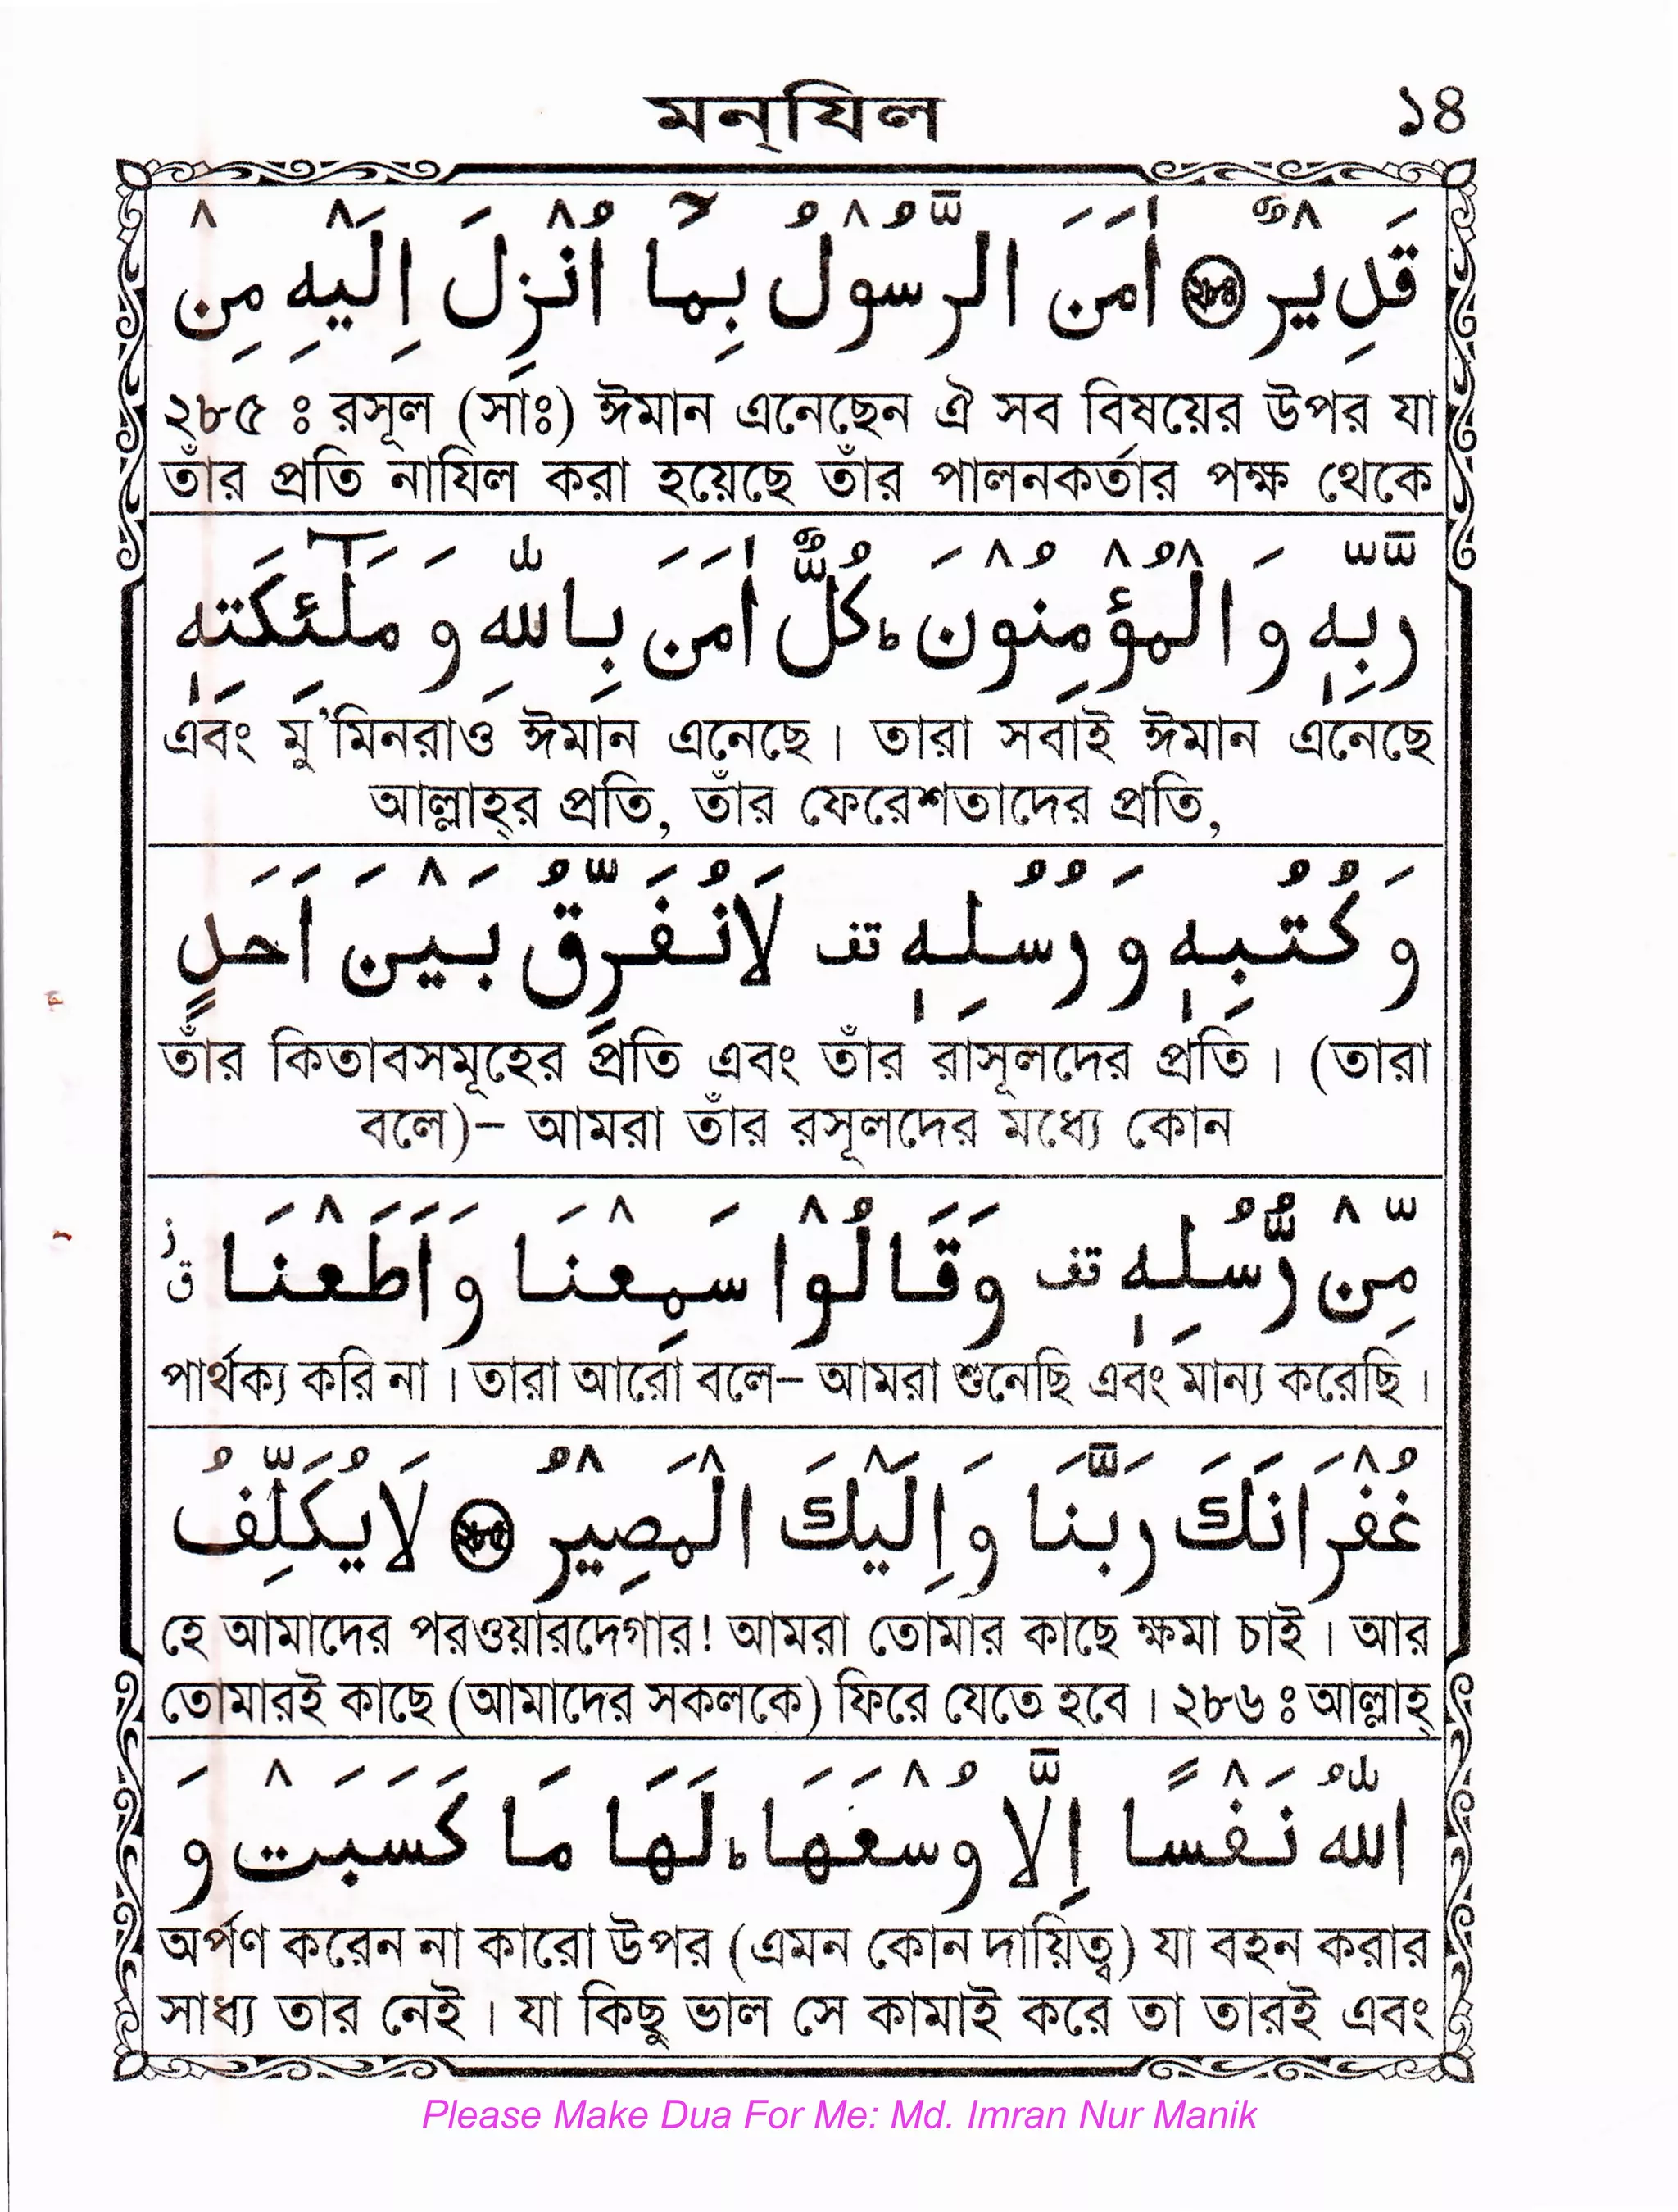 মন্‌যিল ১৪
قَدِيْرٌ ﴿۲۸۴﴾ اٰمَنَ الرَّسُوْلُ بِمَاۤ اُنْزِلَ اِلَيْهِ مِنْ
২৮৫ ঃ রসূল (সাঃ) ঈমান এনেছেন ঐ সব বিষয়ের উপর যা
তাঁর প্রতি নাযিল করা হয়েছে তাঁর পালনকর্তার পক্ষ থেকে
رَّبِّهٖ وَ الْمُؤْمِنُوْنَ ؕ كُلٌّ اٰمَنَ بِاللّٰهِ وَ مَلٰٓئِكَتِهٖ
এবং মু’মিনরাও ঈমান এনেছে। তারা সবাই ঈমান এনেছে
আল্লাহ্‌র প্রতি, তাঁর ফেরেশতাদের প্রতি,
وَ كُتُبِهٖ وَ رُسُلِهٖ قف لَا نُفَرِّقُ بَيْنَ اَحَدٍ
তাঁর কিতাবসমূহের প্রতি এবং তাঁর রাসূলদের প্রতি। (তারা
বলে)– আমরা তাঁর রসূলদের মধ্যে কোন
مِّنْ رُّسُلِهٖ قف وَقَالُوْا سَمِعْنَا وَاَطَعْنَا ز ق
পার্থক্য করি না। তারা আরো বলে– আমরা শুনেছি এবং মান্য করেছি।
غُفْرَانَكَ رَبَّنَا وَاِلَيْكَ الْمَصِيْرُ ﴿۲۸۵﴾ لَا يُكَلِّفُ
হে আমাদের পরওয়ারদেগার! আমরা তোমার কাছে ক্ষমা চাই। আর
তোমারই কাছে (আমাদের সকলকে) ফিরে যেতে হবে। ২৮৬ ঃ আল্লাহ্
اللّٰهُ نَفْسًا اِلَّا وُسْعَهَا ؕ لَهَا مَا كَسَبَتْ وَ
অর্পণ করেন না কারো উপর (এমন কোন দায়িত্ব) যা বহন করার
সাধ্য তার নেই। যা কিছু ভাল সে কামাই করে তা তারই এবং
Please Make Dua For Me: Md. Imran Nur Manik